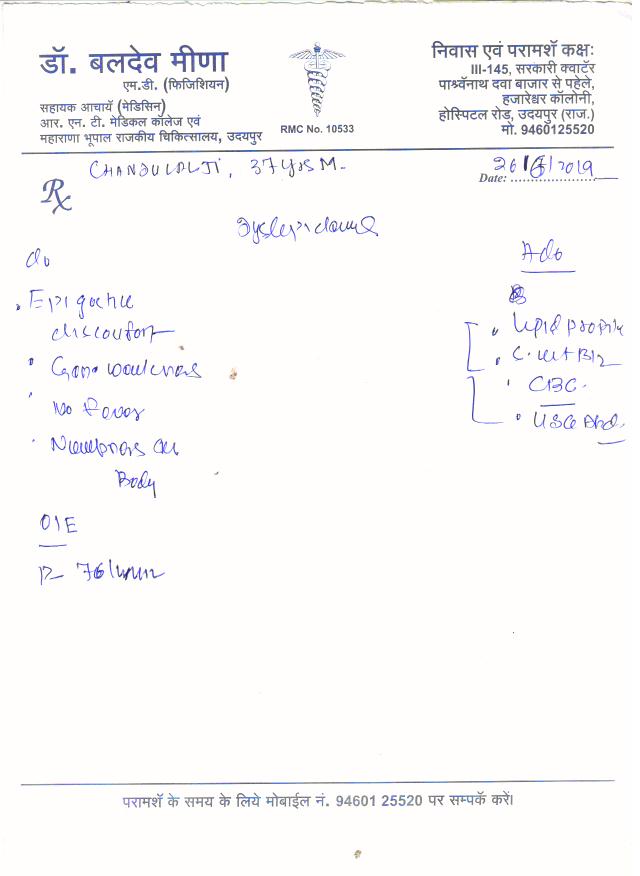 डॉ. बलदेव मीणा
एम.डी. (फिजिशियन)
सहायक आचार्य (मेडिसिन)
आर. एन. टी. मेडिकल कॉलेज एवं
महाराणा भूपाल राजकीय चिकित्सालय, उदयपुर
RMC No. 10533
निवास एवं परामर्श कक्षः
III-145, सरकारी क्वार्टर
पार्श्वनाथ दवा बाजार से पहेले,
हजारेश्वर कॉलोनी,
होस्पिटल रोड, उदयपुर (राज.)
मो. 9460125520
CHANDULALJI, 37 yrs M-
Rx
Date: 26/ /2019
Dyslipidemia
c/o
Epigastric
discomfort
Gen. weakness
No fever
Numbness on
Body
O/E
P- 76/min
Adv
Lipid profile
S. vit B12
CBC
USG Abd.
परामर्श के समय के लिये मोबाईल नं. 94601 25520 पर सम्पर्क करें।